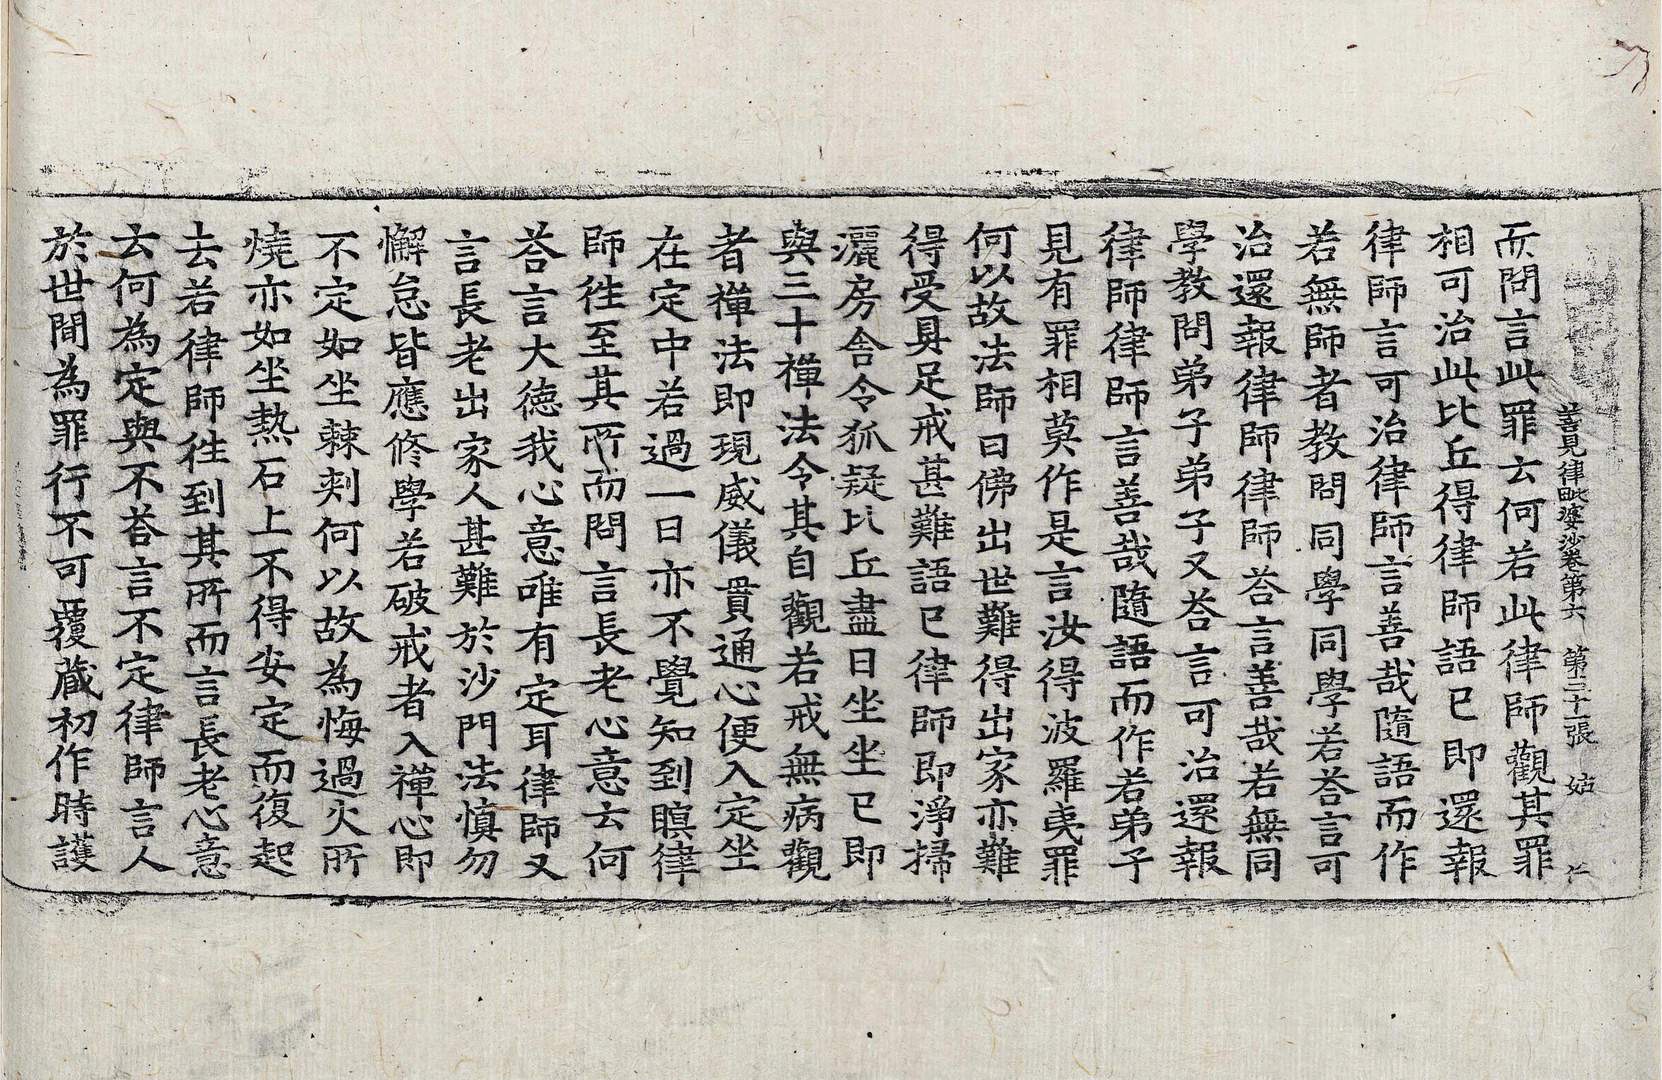 善見律毗婆沙卷第六 第三十二張 姑
而問言此罪云何若此律師觀其罪
相可治此比丘得律師語已即還報
律師言可治律師言善哉隨語而作
若無師者教問同學同學若荅言可
治還報律師律師荅言善哉若無同
學教問弟子弟子又荅言可治還報
律師律師言善哉隨語而作若弟子
見有罪相莫作是言汝得波羅夷罪
何以故法師曰佛出世難得出家亦難
得受具足戒甚難語已律師即淨掃
灑房舍令狐疑比丘盡日坐坐已即
與三十禪法令其自觀若戒無病觀
者禪法即現威儀貫通心便入定坐
在定中若過一日亦不覺知到暝律
師徃至其所而問言長老心意云何
荅言大德我心意唯有定耳律師又
言長老出家人甚難於沙門法慎勿
懈怠皆應修學若破戒者入禪心即
不定如坐棘刾何以故為悔過火所
燒亦如坐熱石上不得安定而復起
去若律師徃到其所而言長老心意
云何為定與不荅言不定律師言人
於世間為罪行不可覆藏初作時護